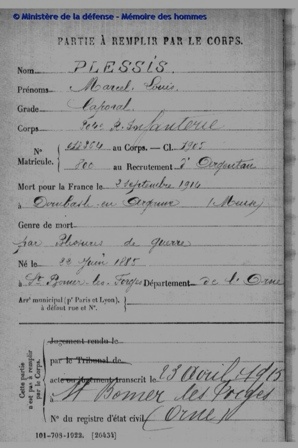 © Ministère de la défense - Mémoire des hommes
PARTIE À REMPLIR PAR LE CORPS.
Nom PLESSIS.
Prénoms Marcel Louis
Grade Caporal
Corps 204e R. Infanterie
N° Matricule. au Corps. — Cl. 1905
800 au Recrutement Argentan
Mort pour la France le 2 Septembre 1914
à Dombasle en Argonne (Meuse)
Genre de mort
par Blessures de guerre
Né le Juin 1885
à St Bomer les Forges Département de l'Orne
Arrt municipal (pr Paris et Lyon),
à défaut rue et N°.
Cette partie n'est pas à remplir par le Corps.
Jugement rendu le
par le Tribunal de
acte ou jugement transcrit le 23 avril 1915
à St Bomer les Forges
N° du registre d'état civil (Orne)
101-708-1922. [26434]